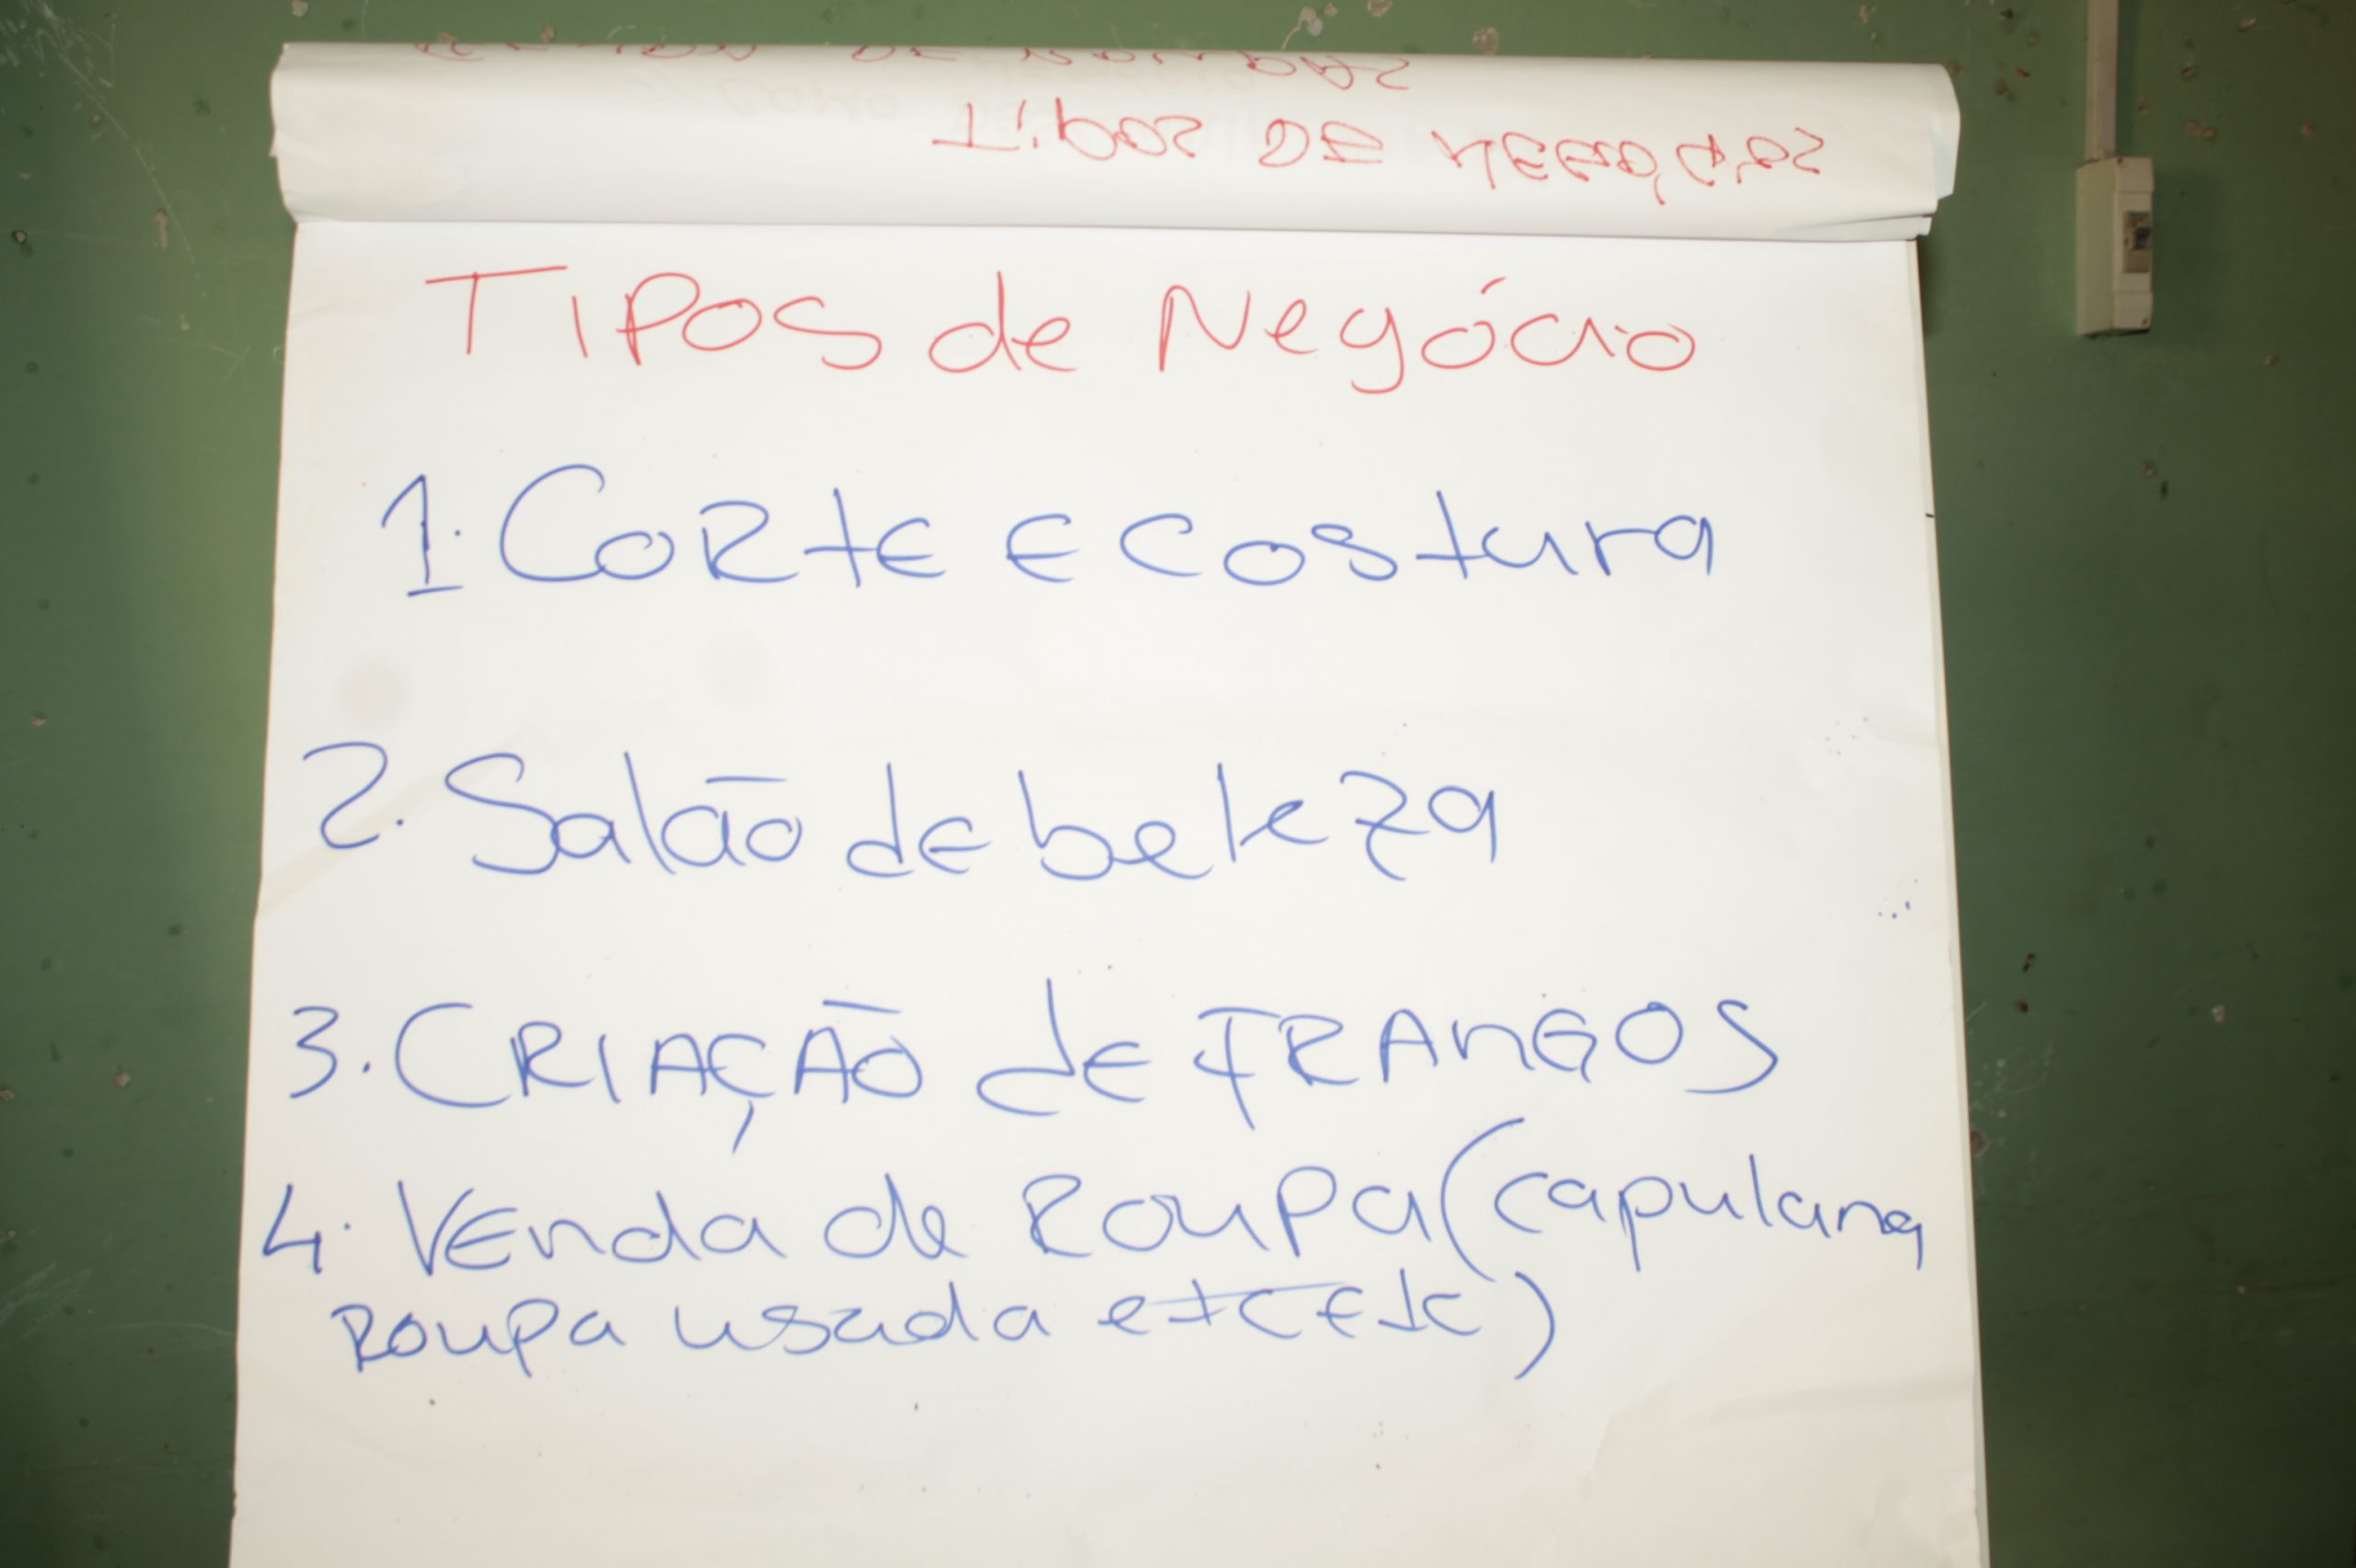 TIPOS DE MERCADOS
TIPOS de Negócio
1. CORtE E costura
2. Salão dE beleza
3. CRIAÇÃO dE FRANGOS
4. VEnda de Roupa (capulana
Roupa usada etc etc)